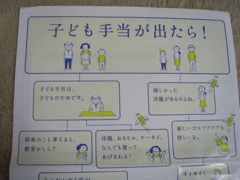 子ども手当が出たら！
子ども手当は、
子どものためです。
欲しかった
洋服があるのよね。
将来のこと考えると、
教育かしら？
洋服、おもちゃ、ケータイ、
なんでも買って
あげるわよ！
新しいゴルフクラブも
欲しいな。